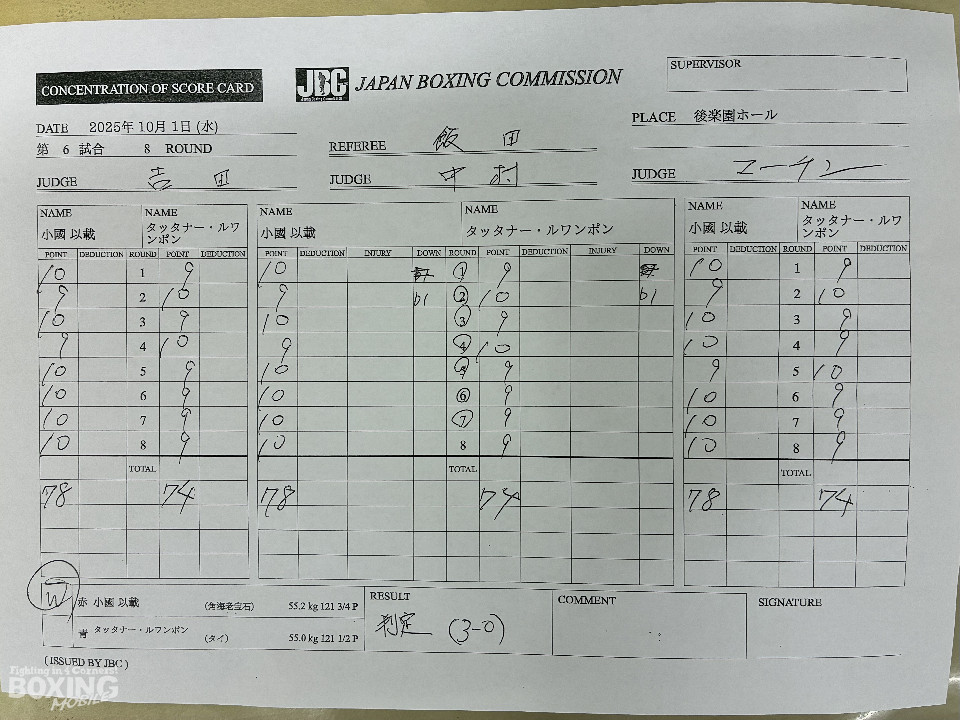 CONCENTRATION OF SCORE CARD
JBC JAPAN BOXING COMMISSION
SUPERVISOR
DATE 2025年10月1日(水)
PLACE 後楽園ホール
第 6 試合 8 ROUND
REFEREE 飯田
JUDGE 吉田
JUDGE 中村
JUDGE マーチン
NAME NAME NAME NAME NAME NAME
小國 以載 タッタナー・ルワンポン 小國 以載 タッタナー・ルワンポン 小國 以載 タッタナー・ルワンポン
POINT DEDUCTION ROUND POINT DEDUCTION POINT DEDUCTION INJURY DOWN ROUND POINT DEDUCTION INJURY DOWN POINT DEDUCTION ROUND POINT DEDUCTION
10 1 9 10 1 9 10 1 9
9 2 10 9 2 10 9 2 10
10 3 9 10 3 9 10 3 9
9 4 10 9 4 10 10 4 9
10 5 9 10 5 9 9 5 10
10 6 9 10 6 9 10 6 9
10 7 9 10 7 9 10 7 9
10 8 9 10 8 9 10 8 9
TOTAL TOTAL TOTAL
78 74 78 74 78 74
W 赤 小國 以載 (角海老宝石) 55.2 kg 121 3/4 P
青 タッタナー・ルワンポン (タイ) 55.0 kg 121 1/2 P
RESULT
判定 (3-0)
COMMENT
SIGNATURE
( ISSUED BY JBC )
Fighting in 4 Corners!
BOXING
MOBILE